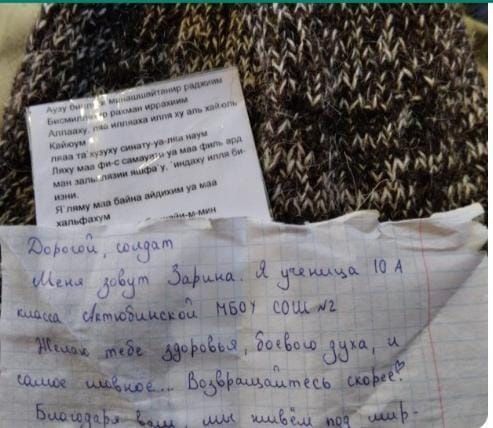 Аузу билляхи минашшайтанир раджиим
Бисмилляхир рахман иррахиим
Аллааху, ляа илляаха илля ху аль хайюль
Кайюум
ляаа та хузуху синату-уа-ляа наум
Ляху маа фи-с самауати уа маа филь ард
ман залььлязии яшфа'у, 'индаху илля би-
изни.
Я'ляму маа байна айдихим уа маа
хальфахум шайи-м-мин
Дорогой, солдат
Меня зовут Зарина. Я ученица 10 А
класса Актюбинской МБОУ СОШ №2
Желаю тебе здоровья, боевого духа, и
самое главное... Возвращайтесь скорее!
Благодаря вам, мы живём под мир-